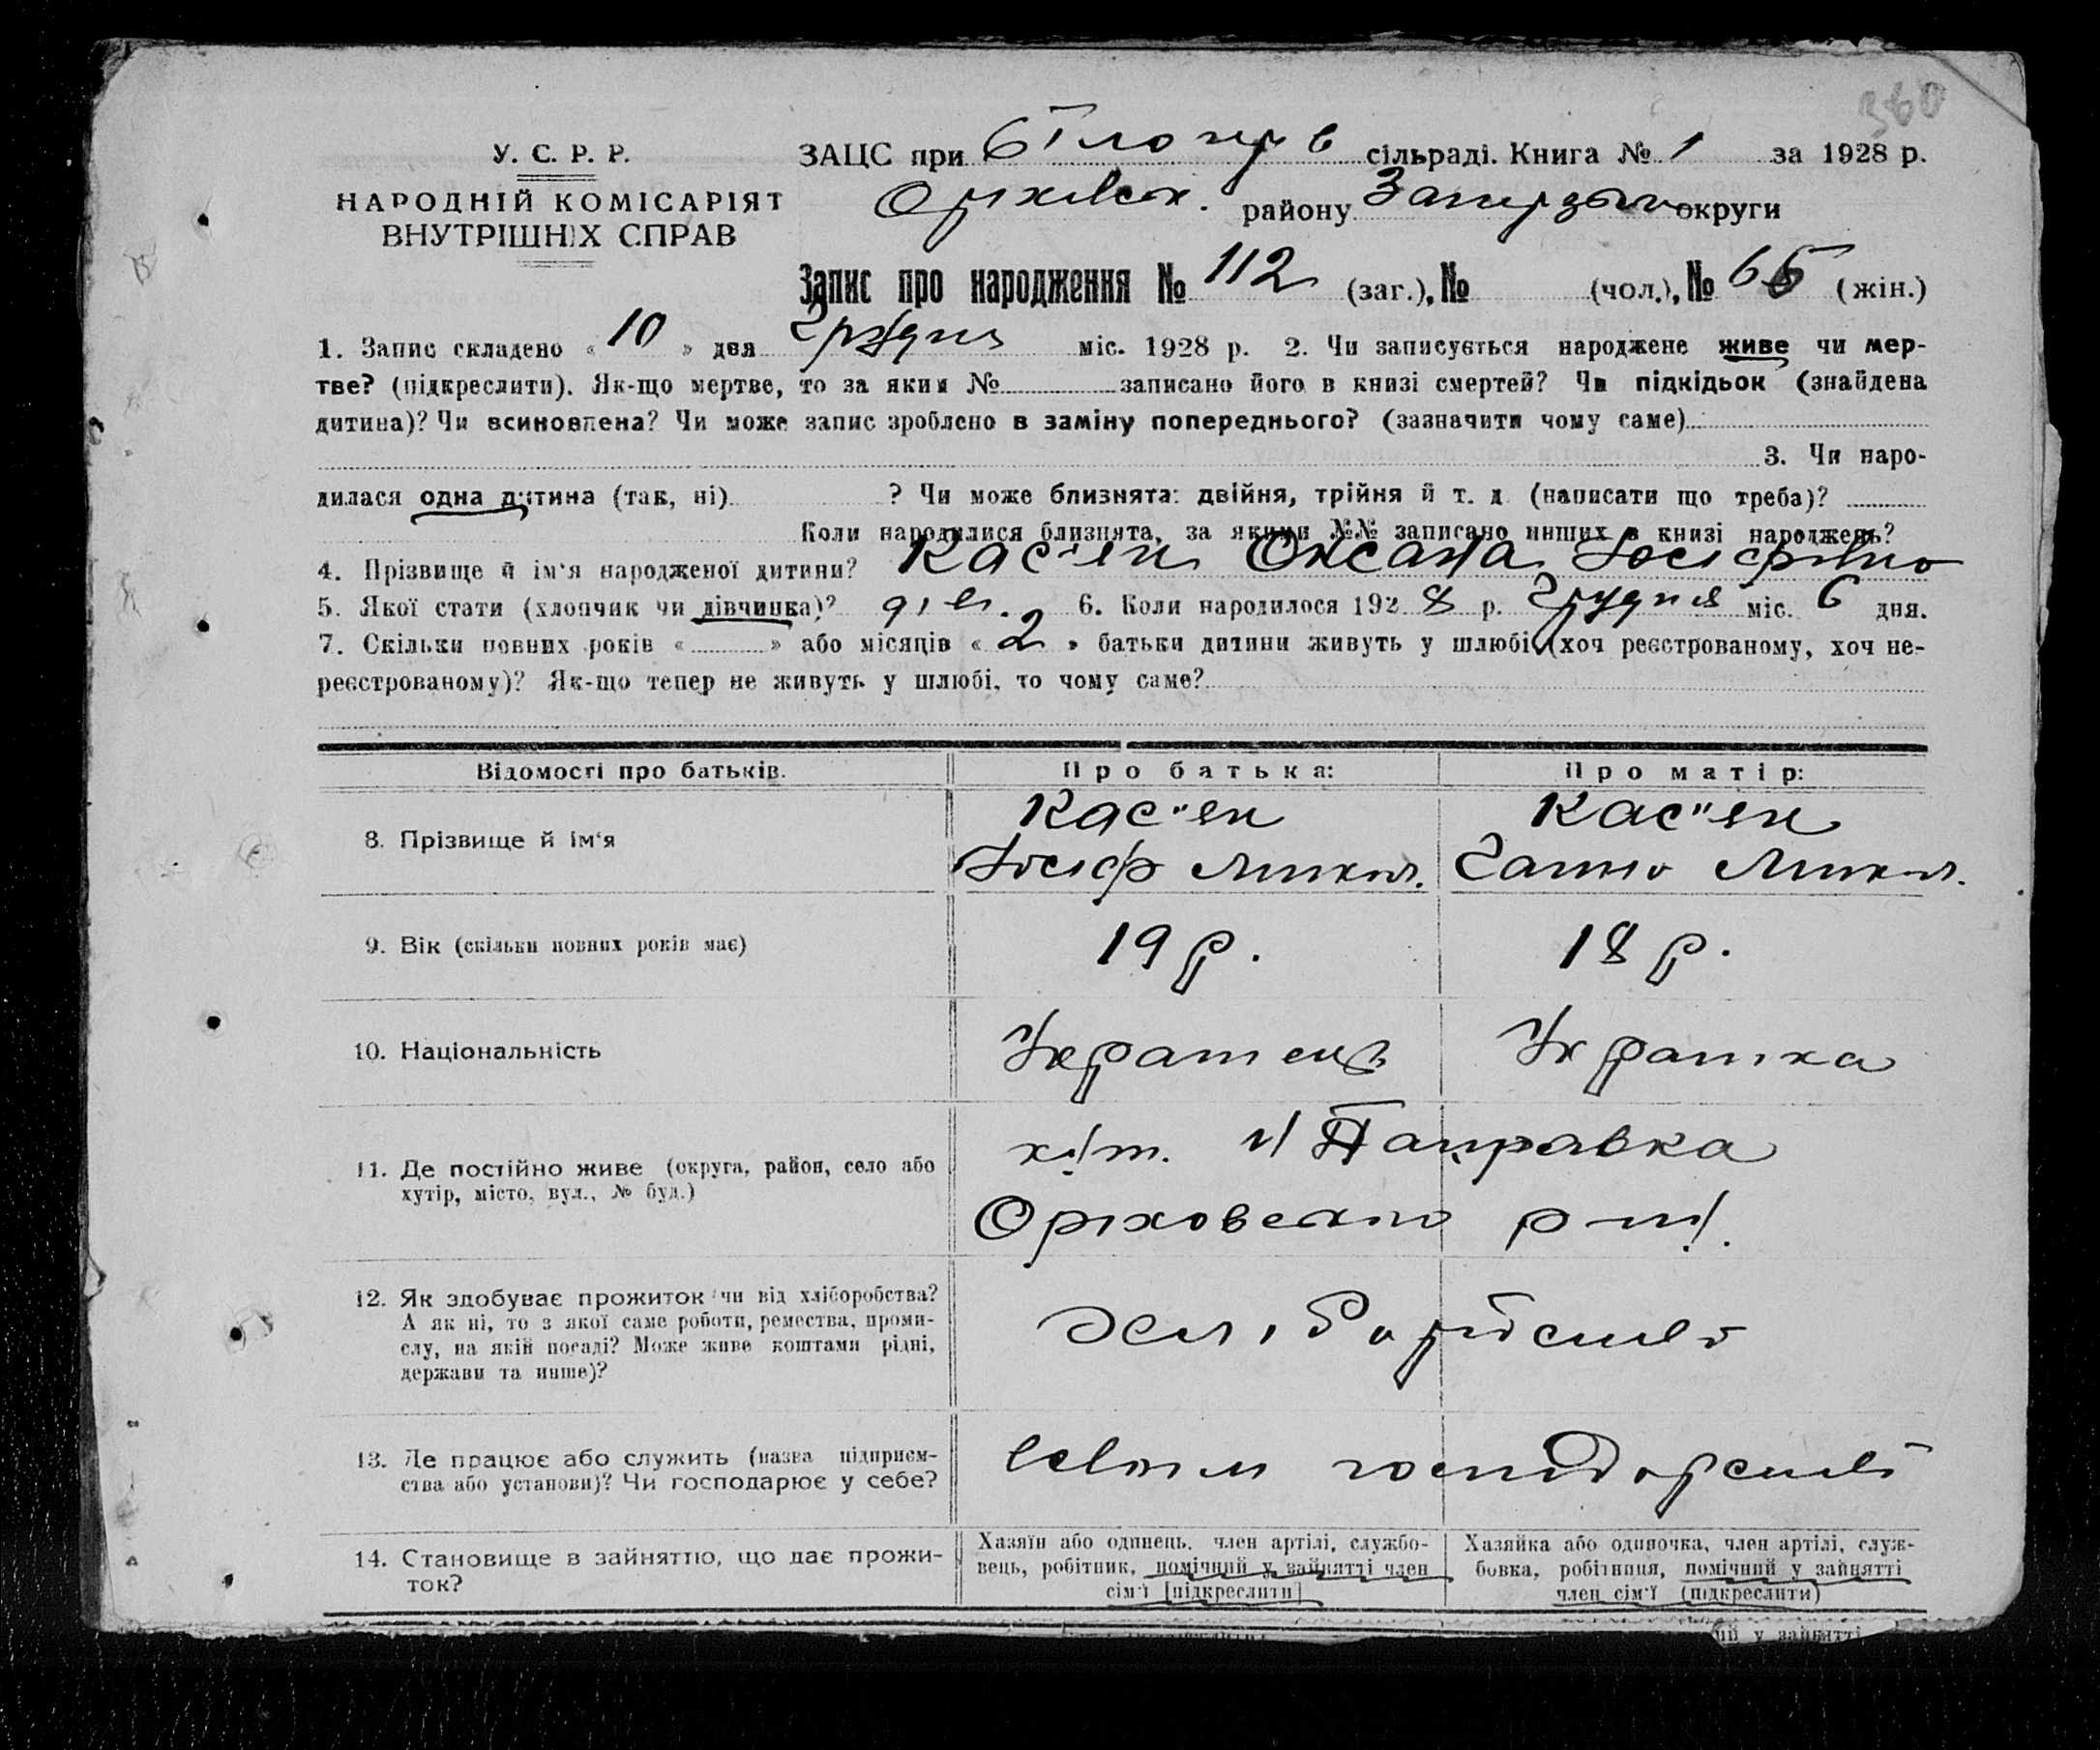 360
У. С. Р. Р.
НАРОДНІЙ КОМІСАРІЯТ
ВНУТРІШНІХ СПРАВ
ЗАЦС при Білогір'в сільраді. Книга № 1 за 1928 р.
Оріхівськ. району Запорізьк округи
Запис про народження № 112 (заг.), № (чол.), № 66 (жін.)
1. Запис складено « 10 » дня Грудня міс. 1928 р. 2. Чи записується народжене живе чи мер-
тве? (підкреслити). Як-що мертве, то за яким № записано його в книзі смертей? Чи підкідьок (знайдена
дитина)? Чи всиновлена? Чи може запис зроблено в заміну попереднього? (зазначити чому саме)
3. Чи наро-
дилася одна дитина (так, ні) ? Чи може близнята: двійня, трійня й т. д. (написати що треба)?
Коли народилися близнята, за якими №№ записано инших в книзі народжень?
4. Прізвище й ім'я народженої дитини? Кас"ян Оксана Йосифівна
5. Якої стати (хлопчик чи дівчинка)? дів. 6. Коли народилося 1928 р. Грудня міс. 6 дня.
7. Скільки повних років « » або місяців « 2 » батьки дитини живуть у шлюбі (хоч реєстрованому, хоч не-
реєстрованому)? Як-що тепер не живуть у шлюбі, то чому саме?
Відомості про батьків. Про батька: Про матір:
8. Прізвище й ім'я
Кас"ян Кас"ян
Йосиф Микол. Ганна Микол.
9. Вік (скільки повних років має) 19 р. 18 р.
10. Національність Українець Українка
11. Де постійно живе (округа, район, село або
хутір, місто, вул., № буд.)
хут.
Оріховского р-ну.
12. Як здобуває прожиток чи від хліборобства?
А як ні, то з якої саме роботи, ремества, проми-
слу, на якій посаді? Може живе коштами рідні,
держави та инше)?
Хліборобство
13. Де працює або служить (назва підприєм-
ства або установи)? Чи господарює у себе?
в своїм господарстві
14. Становище в зайняттю, що дає прожи-
ток?
Хазяїн або одинець, член артілі, службо-
вець, робітник, помічний у зайнятті член
сім'ї [підкреслити]
Хазяйка або одиночка, член артілі, служ-
бовка, робітниця, помічний у зайнятті
член сім'ї (підкреслити)
ий у зайнятті